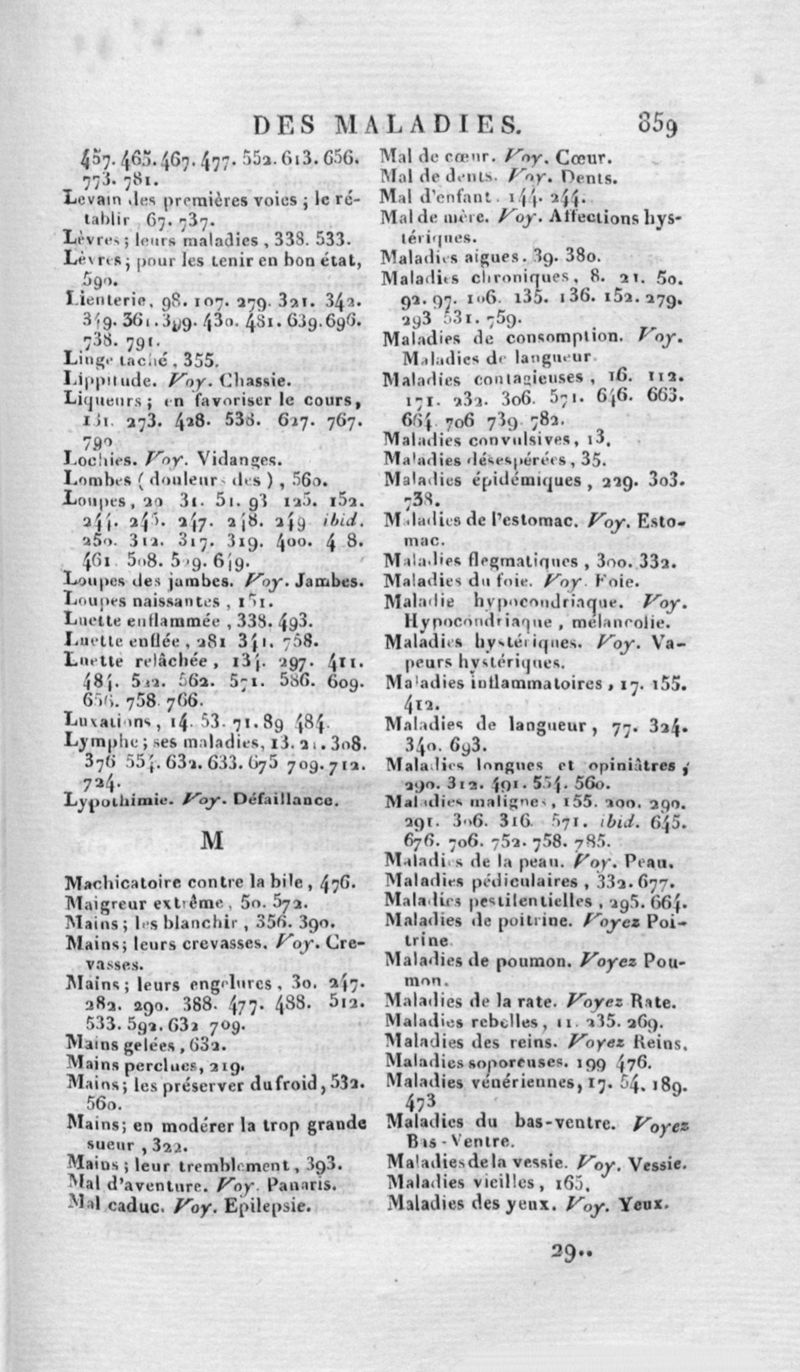 DES MALADIES. 859
457. 465. 467. 477. 552. 613. 656.
773. 781.
Levain des premières voies ; le ré-
tablir 67. 737.
Lèvres ; leurs maladies , 338. 533.
Lèvres ; pour les tenir en bon état,
590.
Lienterie, 98. 107. 279. 321. 342.
349. 361. 399. 430. 481. 639. 696.
738. 791.
Linge taché , 355.
Lippitude. Voy. Chassie.
Liqueurs ; en favoriser le cours,
131. 273. 428. 538. 627. 767.
790
Lochies. Voy. Vidanges.
Lombes ( douleurs des ) , 560.
Loupes, 20 31. 51. 93 125. 152.
244. 245. 247. 248. 249 ibid.
250. 312. 317. 319. 400. 4 8.
461 508. 509. 649.
Loupes des jambes. Voy. Jambes.
Loupes naissantes , 151.
Luette enflammée , 338. 493.
Luette enflée , 281 341. 758.
Luette relâchée, 134. 297. 411.
484. 522. 562. 571. 586. 609.
656. 758 766.
Luxations, 14. 53. 71. 89 484.
Lymphe ; ses maladies, 13. 21. 308.
376 554. 632. 633. 675 709. 712.
724.
Lypothimie. Voy. Défaillance.
M
Machicatoire contre la bile , 476.
Maigreur extrême, 50. 572.
Mains ; les blanchir , 356. 390.
Mains; leurs crevasses. Voy. Cre-
vasses.
Mains ; leurs engelures , 30. 247.
282. 290. 388. 477. 488. 512.
533. 592. 632 709.
Mains gelées , 632.
Mains percluses, 219.
Mains; les préserver du froid, 532.
560.
Mains; en modérer la trop grande
sueur , 322.
Mains ; leur tremblement, 393.
Mal d'aventure. Voy. Panaris.
Mal caduc. Voy. Epilepsie.
Mal de cœur. Voy. Cœur.
Mal de dents. Voy. Dents.
Mal d'enfant. 144. 244.
Mal de mère. Voy. Affections hys-
tériques.
Maladies aigues. 39. 380.
Maladies chroniques, 8. 21. 50.
92. 97. 106. 135. 136. 152. 279.
293 531. 759.
Maladies de consomption. Voy.
Maladies de langueur.
Maladies contagieuses , 16. 112.
171. 232. 306. 571. 646. 663.
664. 706 739 782.
Maladies convulsives, 13.
Maladies désespérées , 35.
Maladies épidémiques , 229. 303.
738.
Maladies de l'estomac. Voy. Esto-
mac.
Maladies flegmatiques , 300. 332.
Maladies du foie. Voy. Foie.
Maladie hypocondriaque. Voy.
Hypocondriaque , mélancolie.
Maladies hystériques. Voy. Va-
peurs hystériques.
Maladies inflammatoires , 17. 155.
412.
Maladies de langueur, 77. 324.
340. 693.
Maladies longues et opiniâtres ,
290. 312. 491. 554. 560.
Maladies malignes, 155. 200. 290.
291. 306. 316. 571. ibid. 645.
676. 706. 752. 758. 785.
Maladies de la peau. Voy. Peau.
Maladies pédiculaires , 332. 677.
Maladies pestilentielles , 295. 664.
Maladies de poitrine. Voyez Poi-
trine
Maladies de poumon. Voyez Pou-
mon.
Maladies de la rate. Voyez Rate.
Maladies rebelles, 11. 235. 269.
Maladies des reins. Voyez Reins.
Maladies soporeuses. 199 476.
Maladies vénériennes, 17. 54. 189.
473
Maladies du bas-ventre. Voyez
Bas-Ventre.
Maladies de la vessie. Voy. Vessie.
Maladies vieilles, 165.
Maladies des yeux. Voy. Yeux.
29..